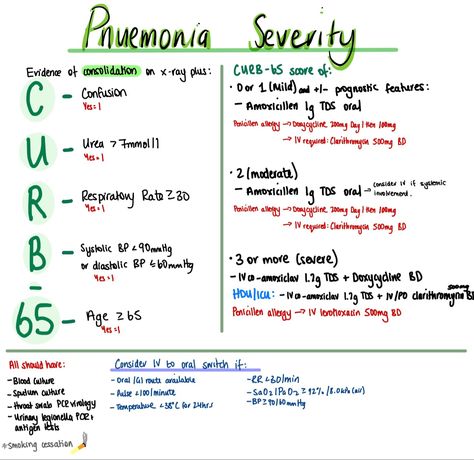 Pnuemonia Severity
Evidence of consolidation on x-ray plus:
C - Confusion
Yes = 1
U - Urea > 7mmol/l
Yes = 1
R - Respiratory Rate ≥30
Yes = 1
B - Systolic BP <90mmHg
or diastolic BP ≤60mmHg
Yes = 1
-
65 - Age ≥65
Yes = 1
CURB-65 score of:
• 0 or 1 (mild) and +/- prognostic features:
- Amoxicillin 1g TDS oral
Penicillin allergy → Doxycycline 200mg Day 1 then 100mg
→ IV required: Clarithromycin 500mg BD
• 2 (moderate)
- Amoxicillin 1g TDS oral → consider IV if systemic
involvement.
Penicillin allergy → Doxycycline 200mg Day 1 then 100mg
→ IV required: Clarithromycin 500mg BD
• 3 or more (severe)
- IV co-amoxiclav 1.2g TDS + Doxycycline BD
500mg
HDU/ICU: - IV co-amoxiclav 1.2g TDS + IV/PO clarithromycin BD
Penicillin allergy → IV levofloxacin 500mg BD
All should have:
- Blood culture
- Sputum culture
- throat swab PCR virology
- Urinary legionella PCR +
antigen tests
+ smoking cessation
Consider IV to oral switch if:
- Oral / GI route available
- Pulse <100/minute
- Temperature <38°C for 24hrs
- RR <30/min
- SaO2/PaO2 ≥92% / 8.0kPa (air)
- BP ≥90/60mmHg